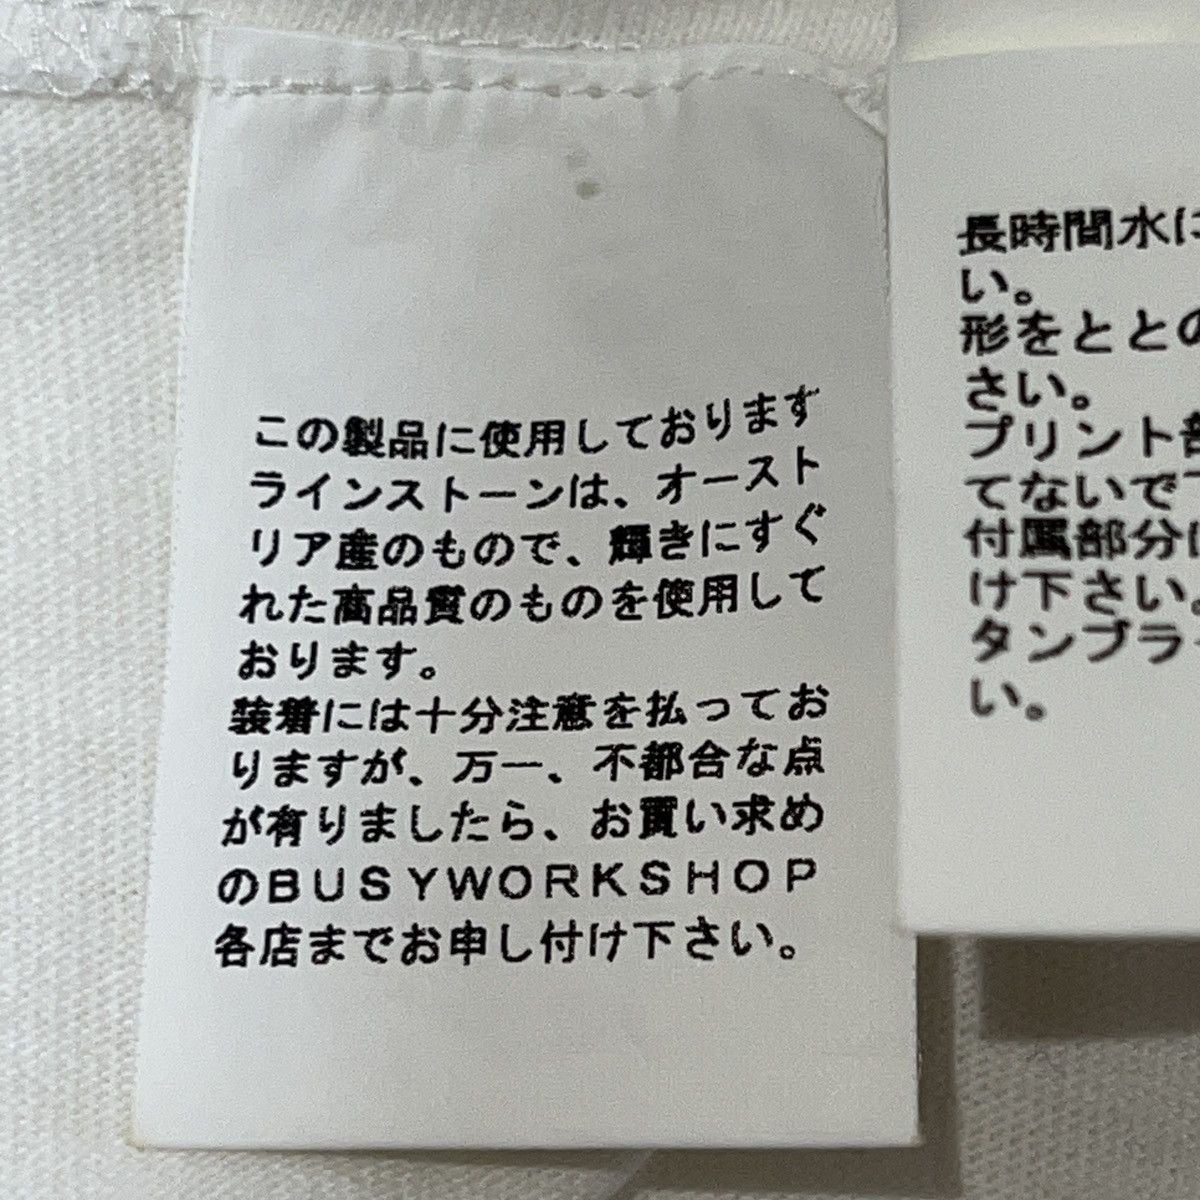 この製品に使用しております
ラインストーンは、オースト
リア産のもので、輝きにすぐ
れた高品質のものを使用して
おります。
装着には十分注意を払ってお
りますが、万一、不都合な点
が有りましたら、お買い求め
のBUSYWORKSHOP
各店までお申し付け下さい。
長時間水に
い。
形をととの
さい。
プリント部
てないで下
付属部分は
け下さい。
タンブラ
い。